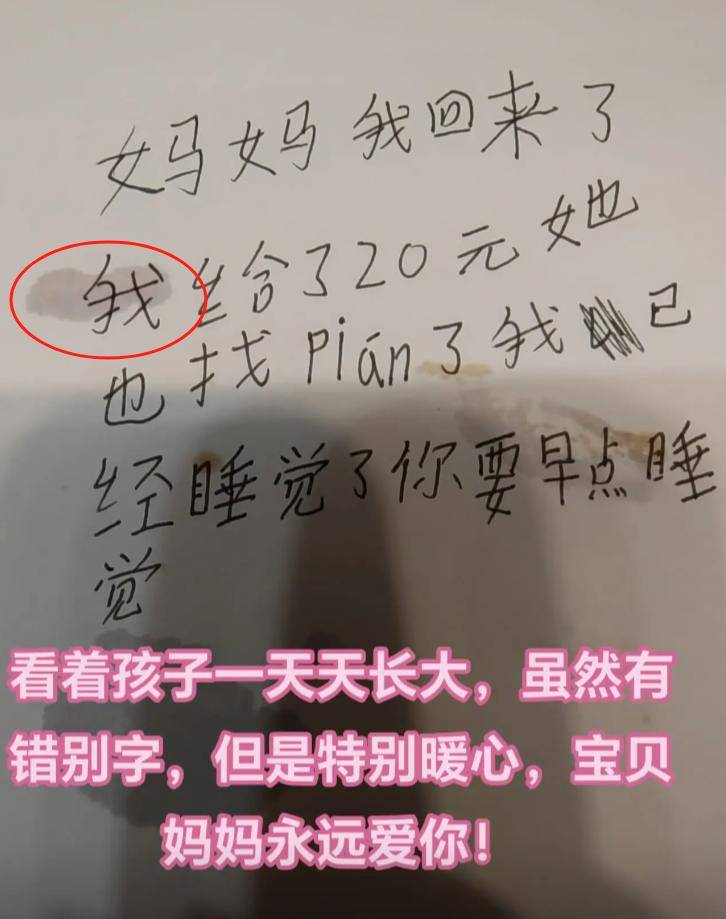 妈妈我回来了
我给了20元她
也找pián了我已
经睡觉了你要早点睡
觉
看着孩子一天天长大，虽然有
错别字，但是特别暖心，宝贝
妈妈永远爱你！